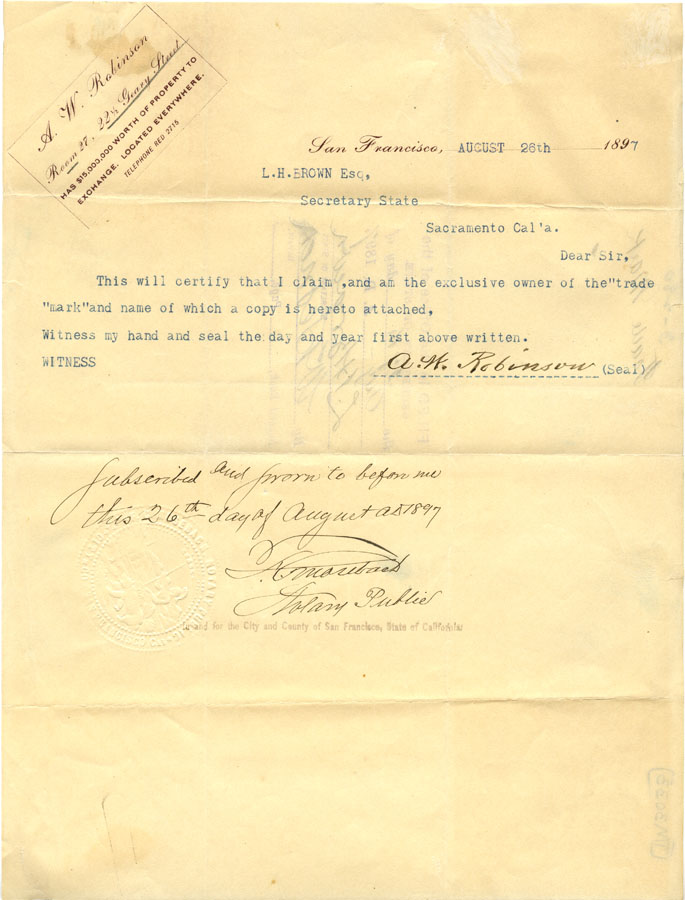 A. W. Robinson
Room 27, 22½ Geary Street
HAS $15,000,000 WORTH OF PROPERTY TO
EXCHANGE. LOCATED EVERYWHERE.
TELEPHONE RED 2715
San Francisco, AUGUST 26th 1897
L.H.BROWN Esq,
Secretary State
Sacramento Cal'a.
Dear Sir,
This will certify that I claim ,and am the exclusive owner of the"trade
"mark"and name of which a copy is hereto attached,
Witness my hand and seal the day and year first above written.
WITNESS A. W. Robinson (Seal)
Subscribed and sworn to before me
this 26th day of August AD 1897
Notary Public
In and for the City and County of San Francisco, State of California